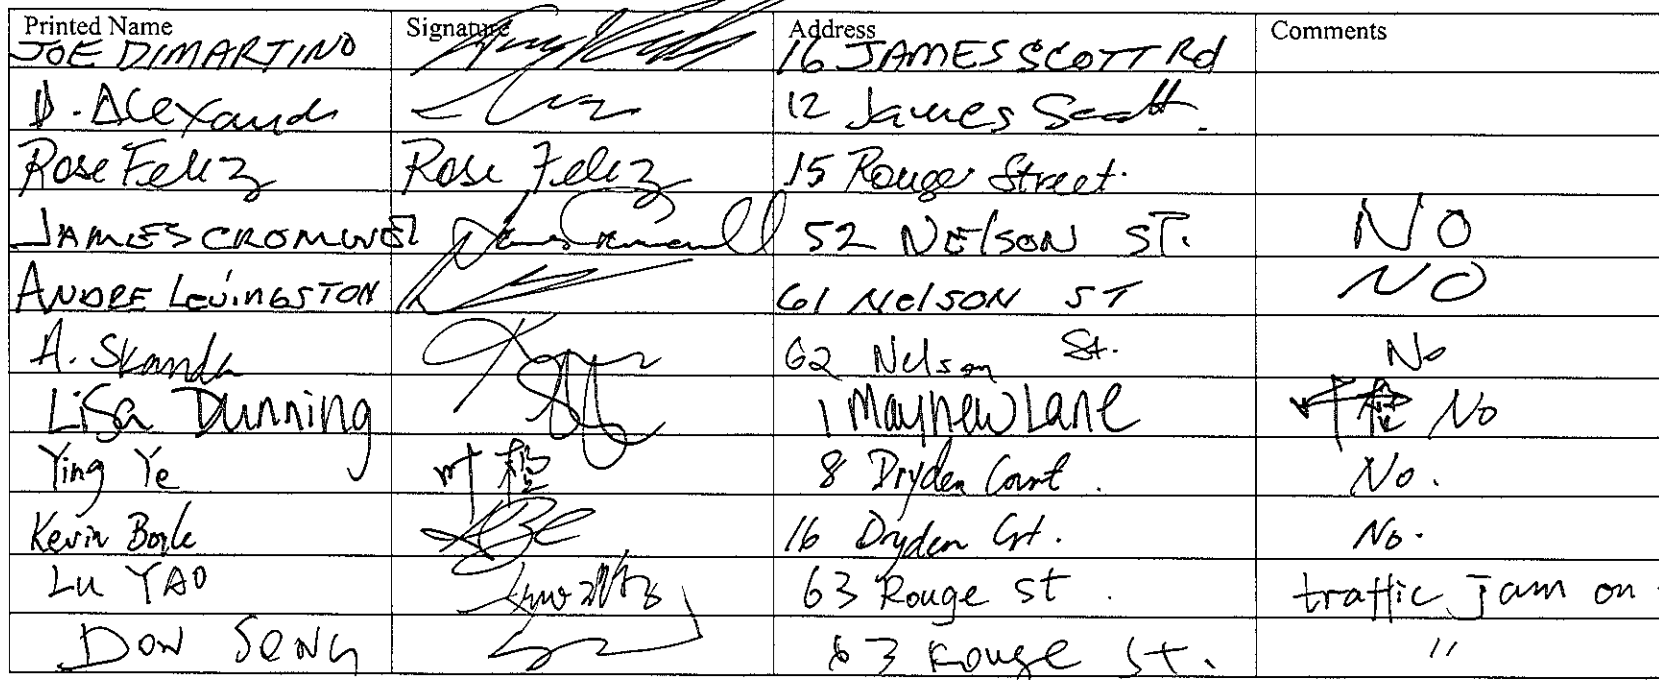 Printed Name Signature Address Comments
JOE DIMARTINO 16 JAMES SCOTT Rd
D. Alexand 12 James Scott.
Rose Feliz Rose Feliz 15 Rouge Street.
JAMES CROMWEL 52 NELSON ST. NO
ANDRE LEVINGSTON 61 NELSON ST NO
A. Skanda 62 Nelson St. No
Lisa Dunning 1 Mayhew Lane No
Ying Ye 8 Dryden Court. No.
Kevin Boyle 16 Dryden Crt. No.
Lu YAO 63 Rouge St. traffic jam on
DON SENG 63 Rouge St. "